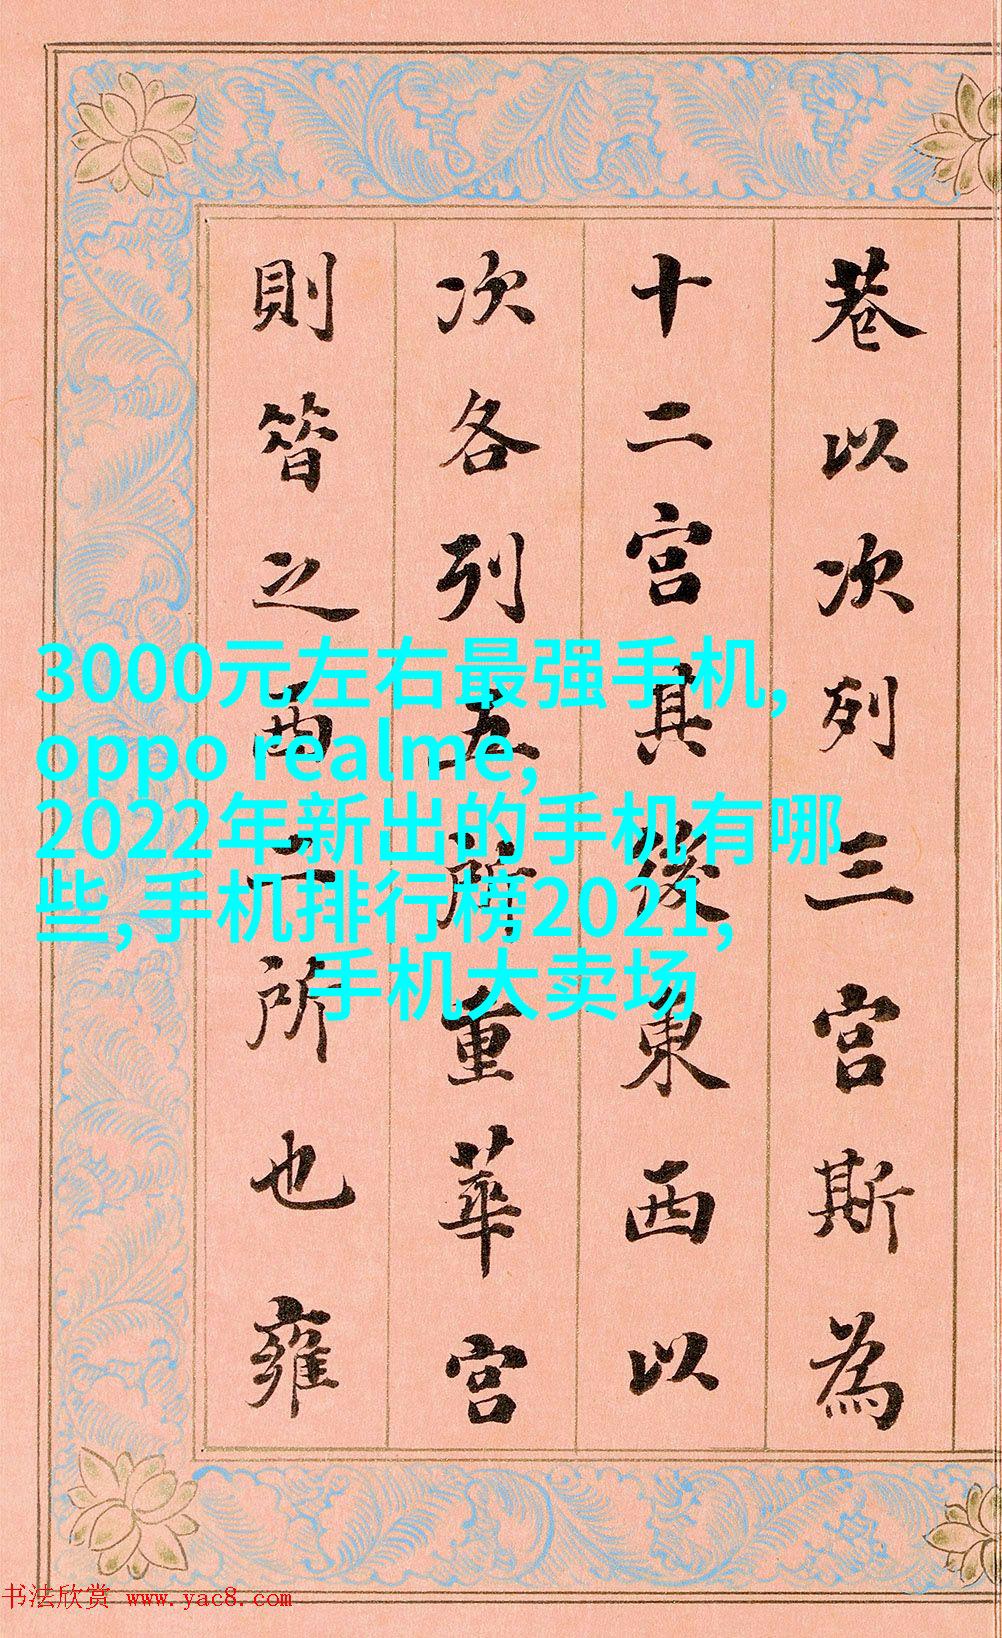 巷以次列三宫斯為
十二宫其後東西以
次各列五所重華宫
則㫺之西二所也雍
3000元左右最强手机,
oppo realme,
2022年新出的手机有哪
些,手机排行榜2021,
手机大卖场
书法欣赏 www.yac8.com